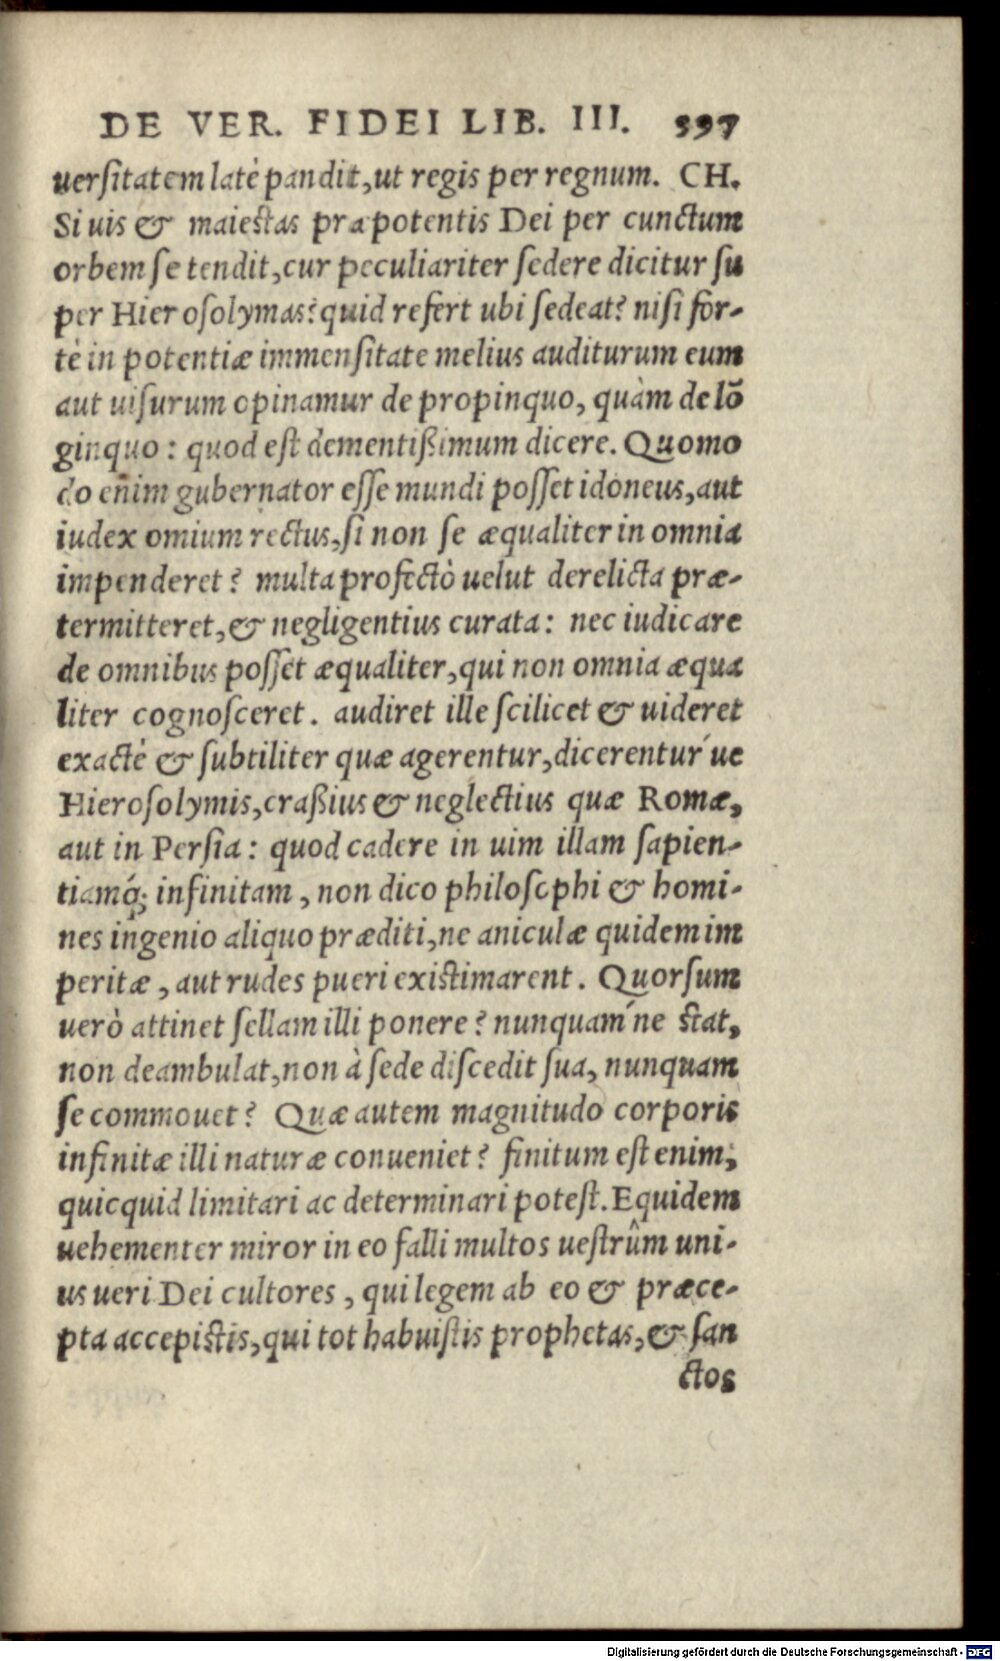 DE VER. FIDEI LIB. III. 397
uersitatem latè pandit, ut regis per regnum. CH.
Si uis & maiestas præpotentis Dei per cunctum
orbem se tendit, cur peculiariter sedere dicitur su
per Hierosolymas? quid refert ubi sedeat? nisi for-
tè in potentiæ immensitate melius auditurum eum
aut uisurum opinamur de propinquo, quàm de lõ
ginquo: quod est dementißimum dicere. Quomo
do enim gubernator esse mundi posset idoneus, aut
iudex omium rectus, si non se æqualiter in omnia
impenderet? multa profectò uelut derelicta præ-
termitteret, & negligentius curata: nec iudicare
de omnibus posset æqualiter, qui non omnia æqua
liter cognosceret. audiret ille scilicet & uideret
exactè & subtiliter quæ agerentur, dicerentur´ue
Hierosolymis, craßius & neglectius quæ Romæ,
aut in Persia: quod cadere in uim illam sapien-
tiamq́; infinitam, non dico philosophi & homi-
nes ingenio aliquo præditi, ne aniculæ quidem im
peritæ, aut rudes pueri existimarent. Quorsum
uerò attinet sellam illi ponere? nunquam´ne stat,
non deambulat, non à sede discedit sua, nunquam
se commouet? Quæ autem magnitudo corporis
infinitæ illi naturæ conueniet? finitum est enim,
quicquid limitari ac determinari potest. Equidem
uehementer miror in eo falli multos uestrûm uni-
us ueri Dei cultores, qui legem ab eo & præce-
pta accepistis, qui tot habuistis prophetas, & san
ctos
Digitalisierung gefördert durch die Deutsche Forschungsgemeinschaft - DFG